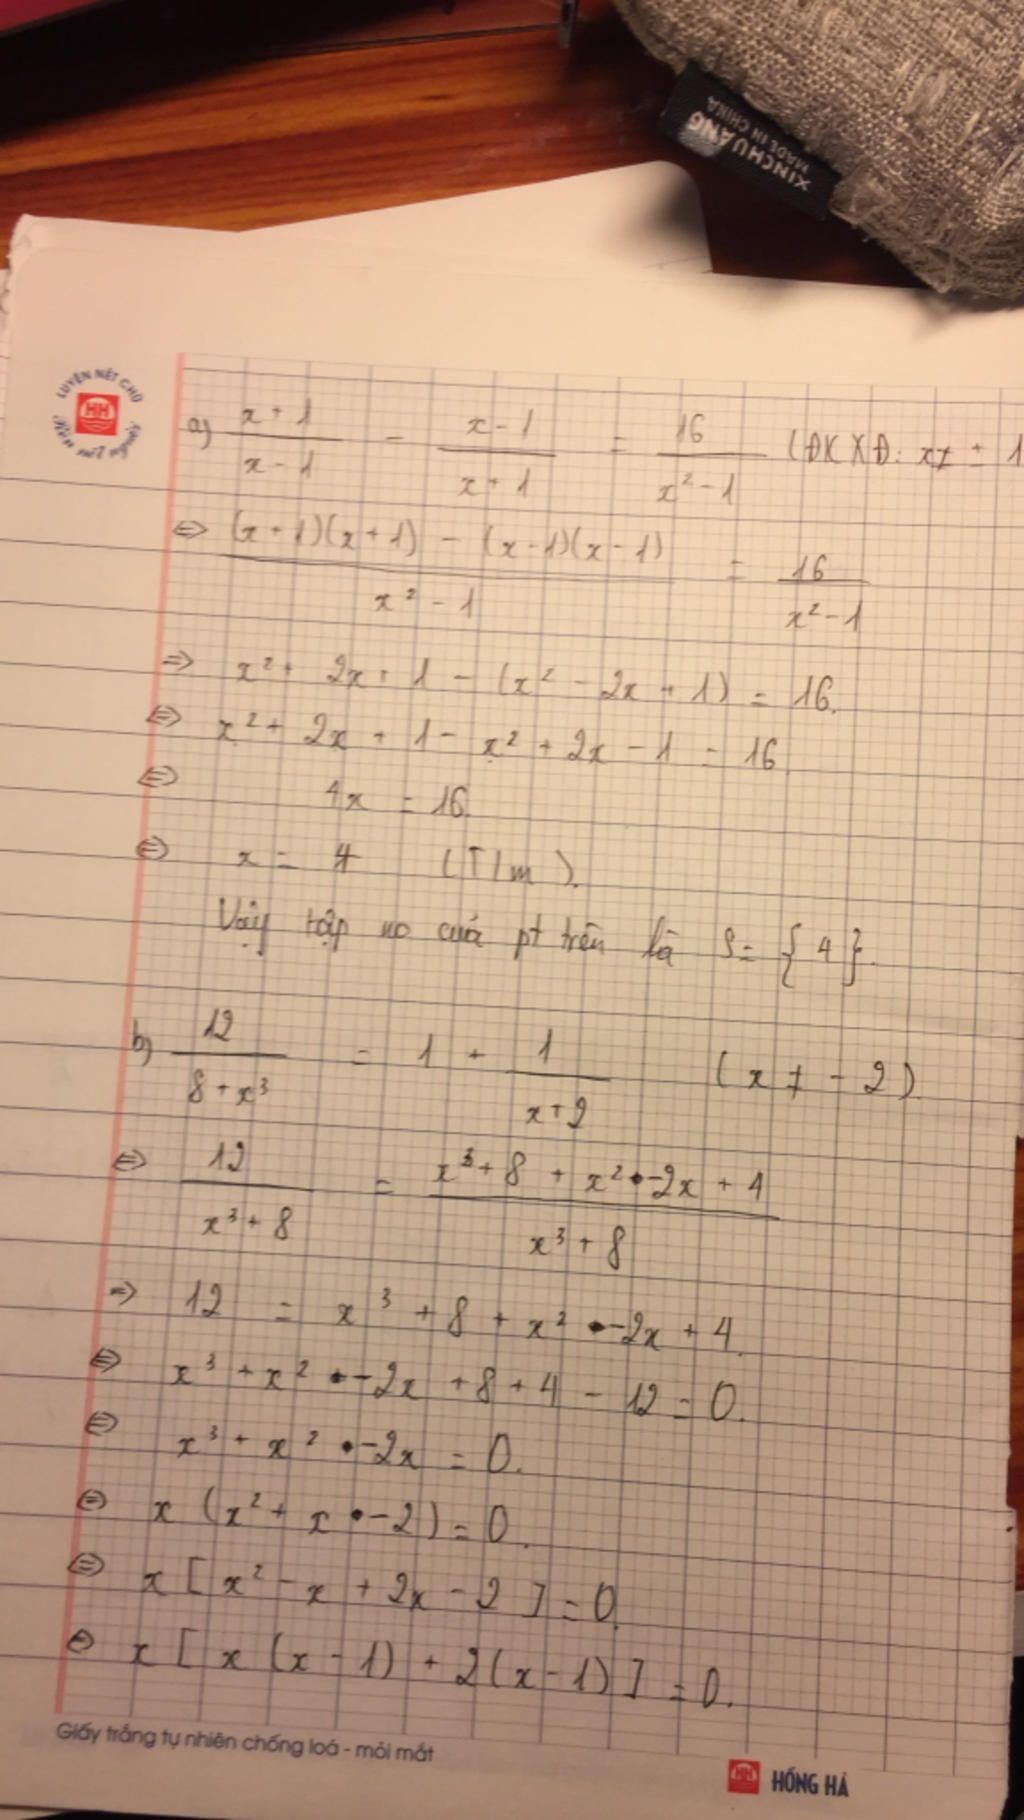 XINCHUANG
MADE IN CHINA
LUYỆN NÉT CHỮ
HH
Rèn nết người
a) \frac{x+1}{x-1} - \frac{x-1}{x+1} = \frac{16}{x²-1} (ĐKXĐ: x ≠ ± 1
⇔ \frac{(x+1)(x+1) - (x-1)(x-1)}{x²-1} = \frac{16}{x²-1}
⇒ x² + 2x + 1 - (x² - 2x + 1) = 16.
⇔ x² + 2x + 1 - x² + 2x - 1 = 16
⇔ 4x = 16.
⇔ x = 4 (T/m).
Vậy tập no của pt trên là S = {4}.
b) \frac{12}{8+x³} = 1 + \frac{1}{x+2} (x ≠ -2)
⇔ \frac{12}{x³+8} = \frac{x³+8 + x² -2x + 4}{x³+8}
⇒ 12 = x³ + 8 + x² -2x + 4.
⇔ x³ + x² -2x + 8 + 4 - 12 = 0.
⇔ x³ + x² -2x = 0.
⇔ x (x² + x -2) = 0.
⇔ x [x² - x + 2x - 2] = 0
⇔ x [x(x-1) + 2(x-1)] = 0.
Giấy trắng tự nhiên chống loá - mỏi mắt
HH HỒNG HÀ